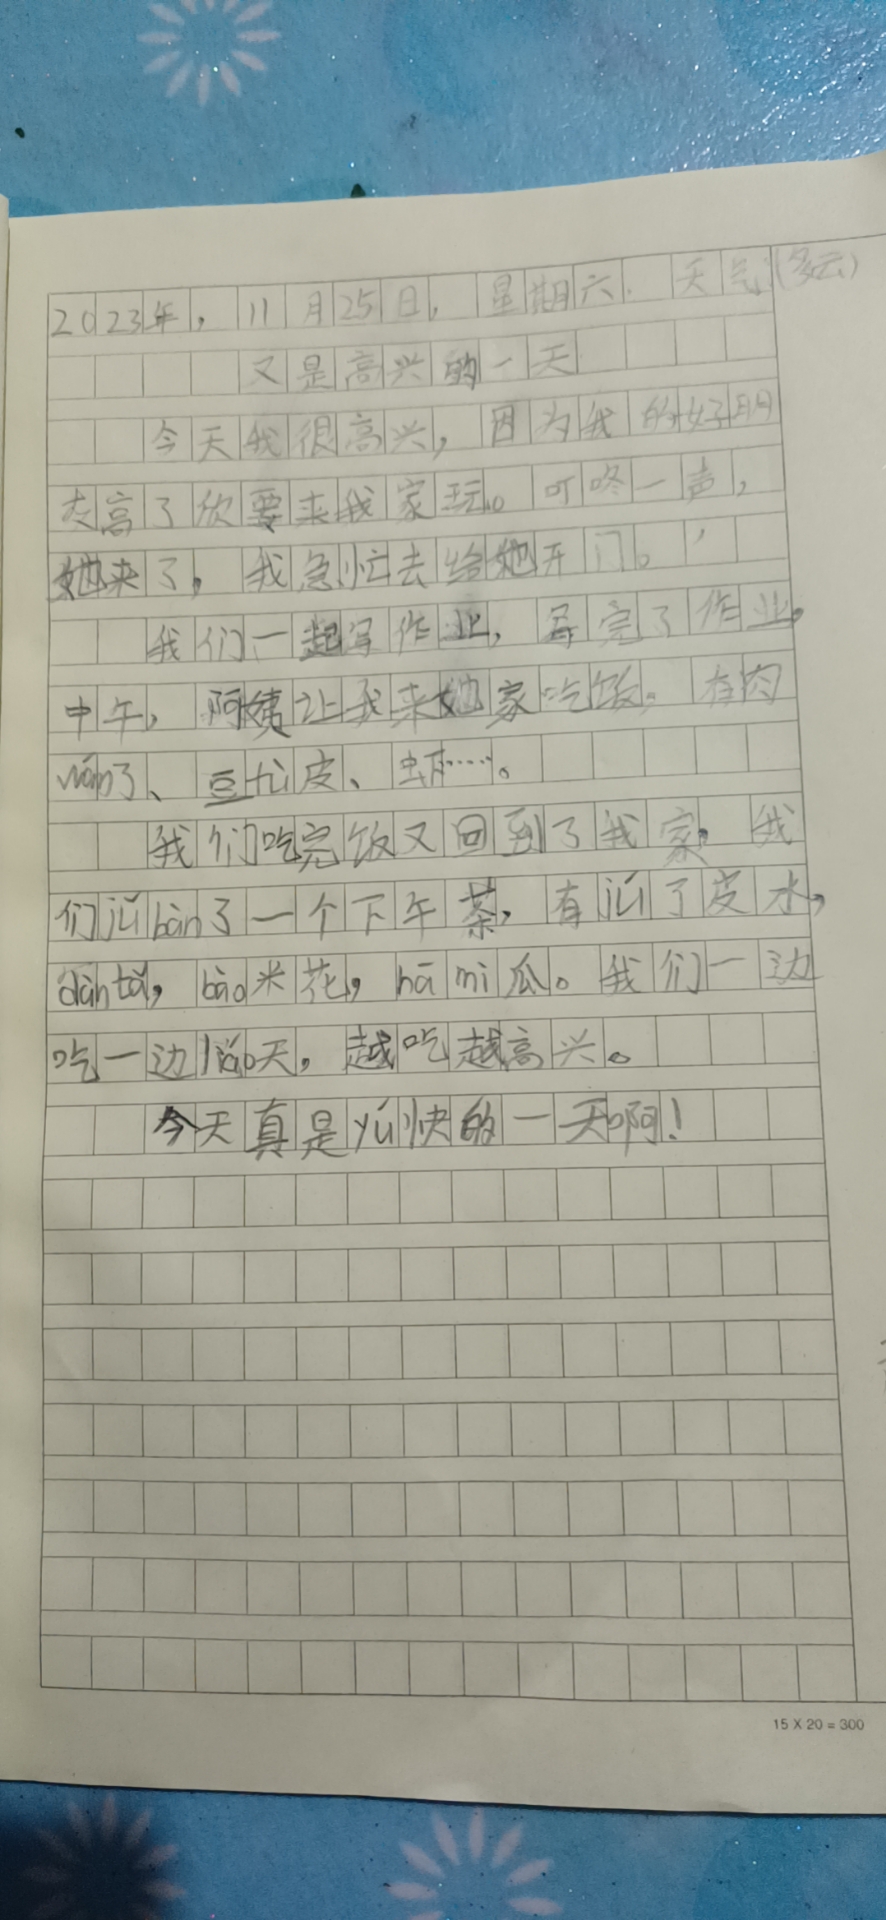 2023年，11月25日，星期六．天气（多云）
又是高兴的一天
今天我很高兴，因为我的好朋
友高了欣要来我家玩。叮咚一声，
她来了，我急忙去给她开门。
我们一起写作业，写完了作业，
中午，阿姨让我来她家吃饭。有肉
wán了、豆fǔ皮、虾……。
我们吃完饭又回到了我家，我
们jǔ bàn了一个下午茶，有jú了皮水，
dàn tǎ，bào米花，hā mì瓜。我们一边
吃一边liáo天，越吃越高兴。
今天真是yú快的一天啊！
15 X 20 = 300